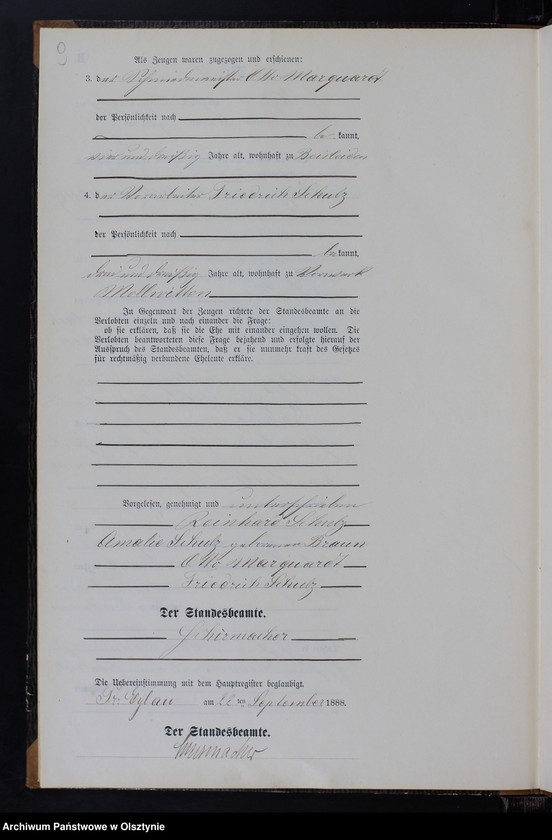 9
Als Zeugen waren zugezogen und erschienen:
3. der Schmiedemeister Otto Marquardt
der Persönlichkeit nach
be kannt,
und dreißig Jahre alt, wohnhaft zu Beisleiden
4. der Vorarbeiter Friedrich Schulz
der Persönlichkeit nach
be kannt,
drei und dreißig Jahre alt, wohnhaft zu Vorwerk
Mollwitten
In Gegenwart der Zeugen richtete der Standesbeamte an die
Verlobten einzeln und nach einander die Frage:
ob sie erklären, daß sie die Ehe mit einander eingehen wollen. Die
Verlobten beantworteten diese Frage bejahend und erfolgte hierauf der
Ausspruch des Standesbeamten, daß er sie nunmehr kraft des Gesetzes
für rechtmäßig verbundene Eheleute erkläre.
Vorgelesen, genehmigt und unterschrieben
Reinhard Schulz
Amalie Schulz geborene Braun
Otto Marquardt
Friedrich Schulz
Der Standesbeamte.
Schirmacher
Die Uebereinstimmung mit dem Hauptregister beglaubigt.
Pr. Eylau am 22 ten September 1888.
Der Standesbeamte.
Schirmacher
Archiwum Państwowe w Olsztynie